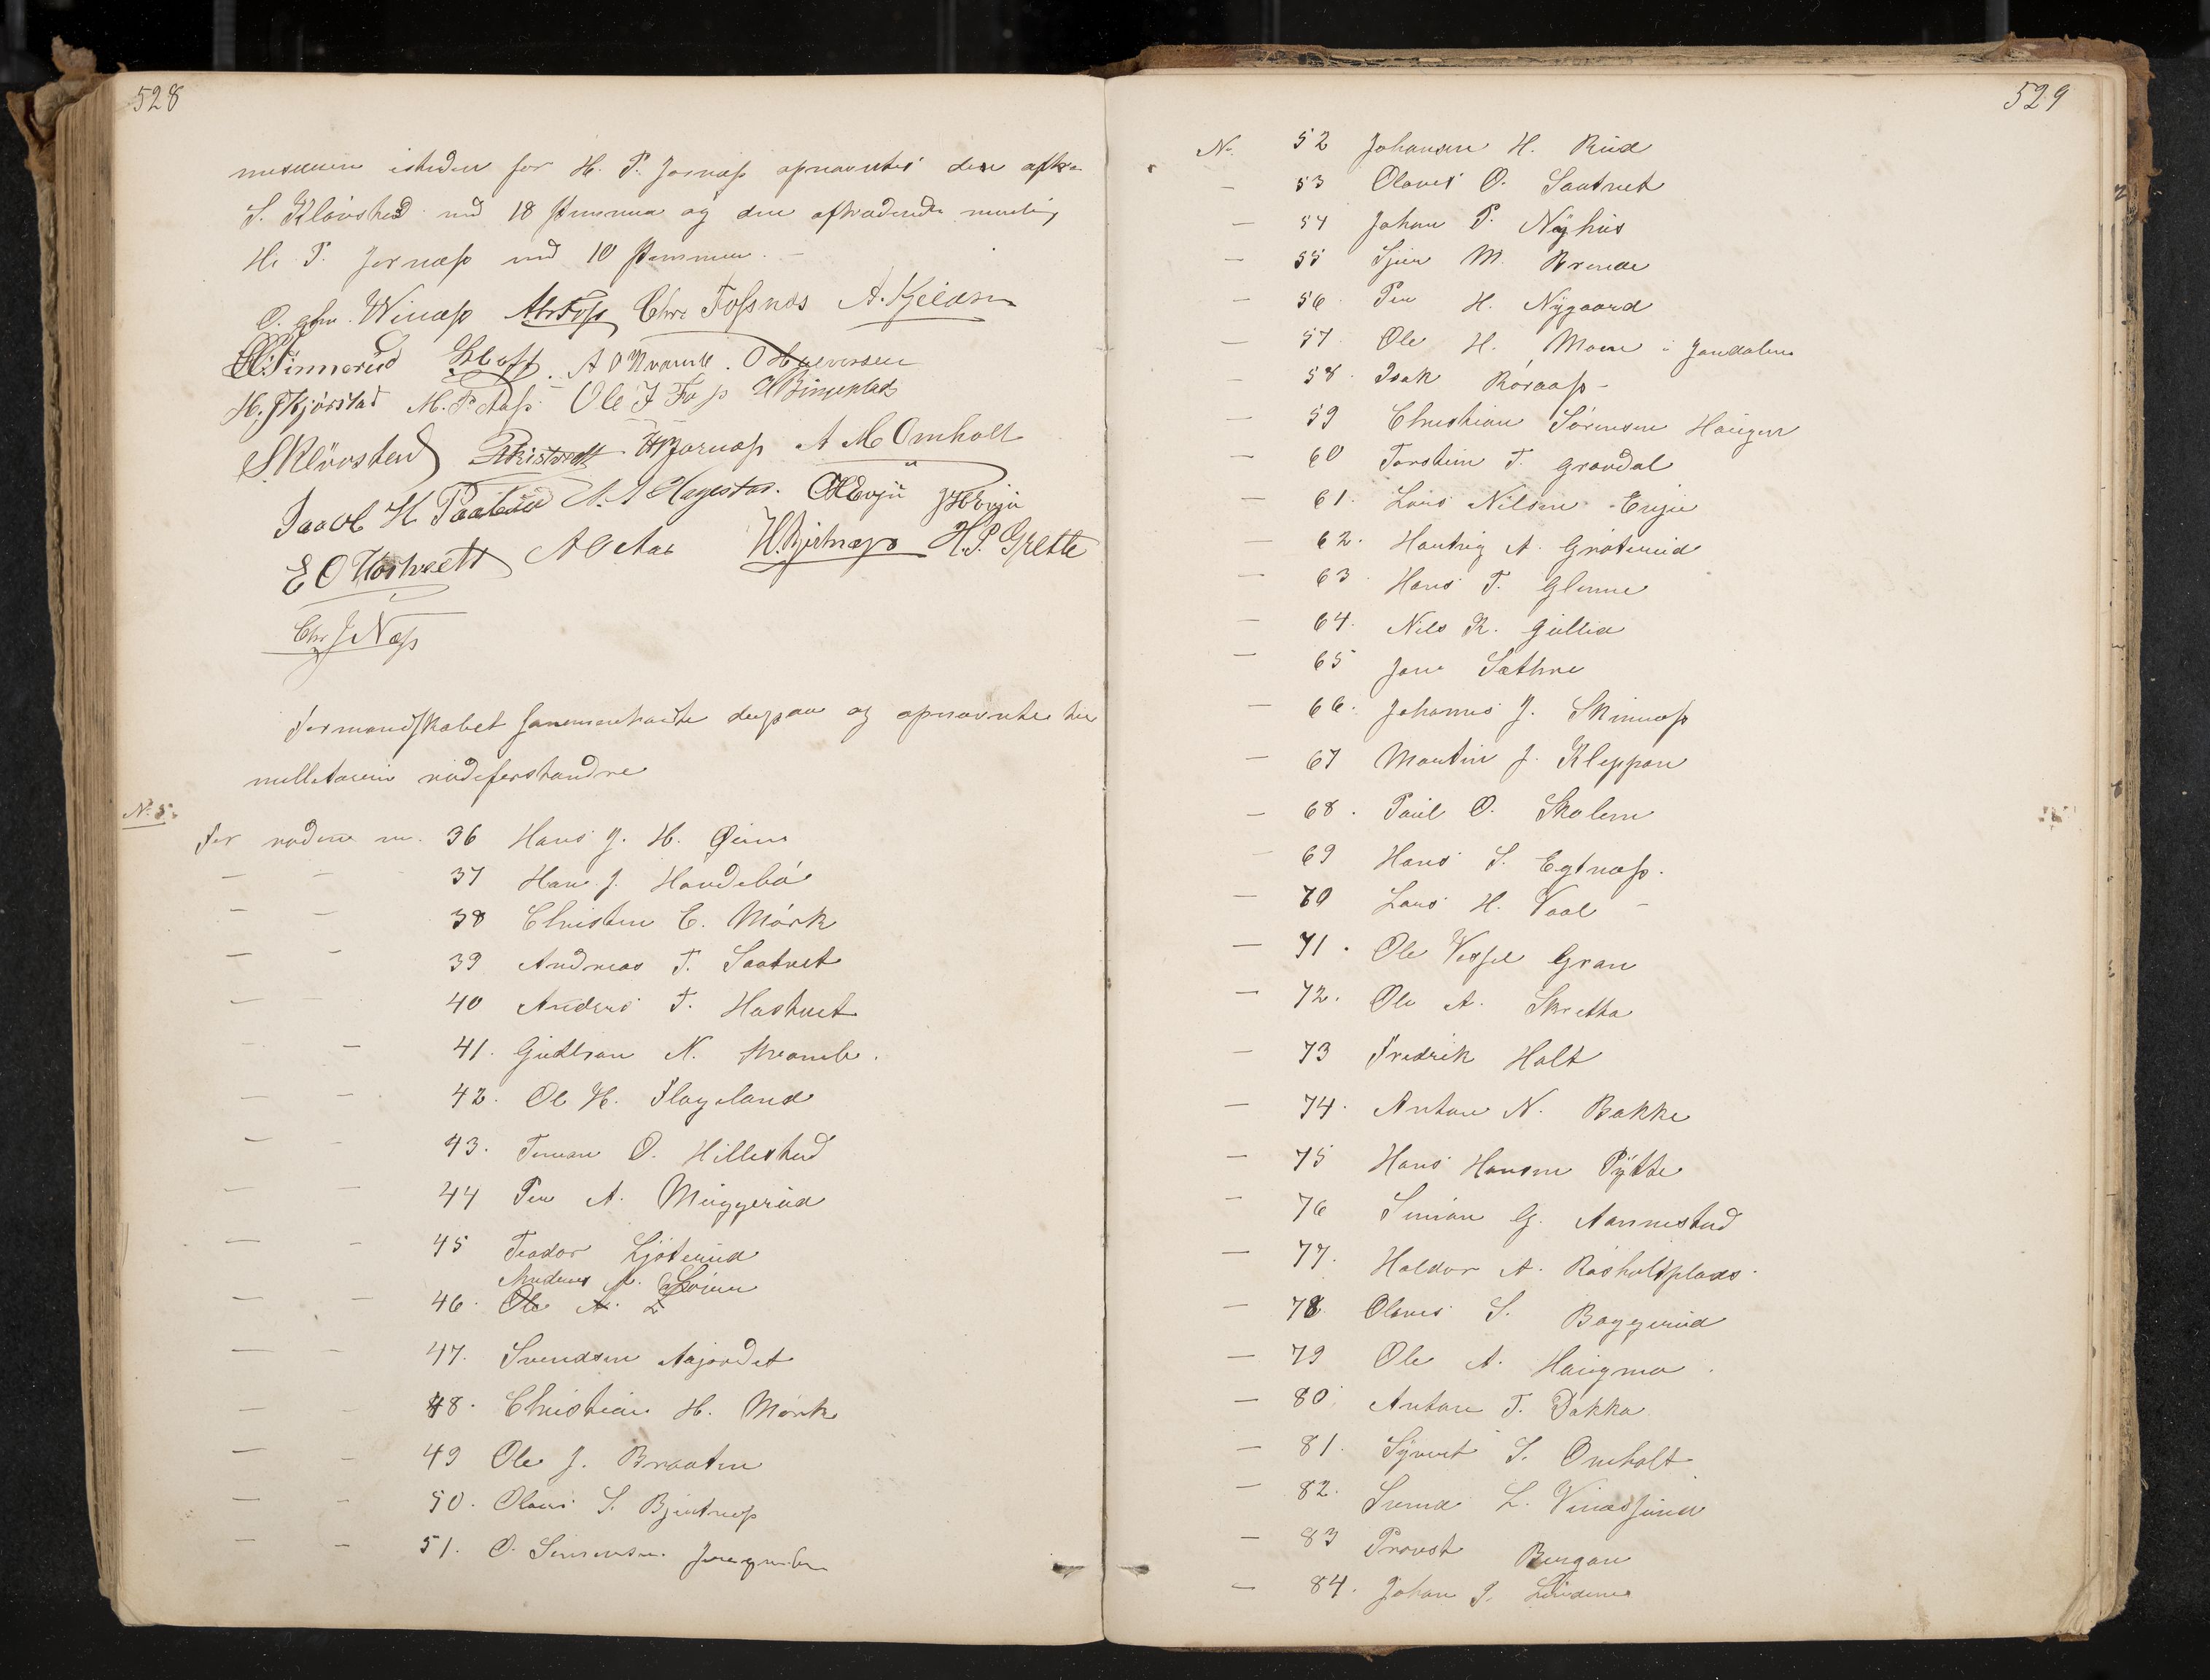 528
isteden for H. P. Jornæss opnævntes den aftr.
S. Klovsted med 18 stemmer og den aftrædende nemlig
H. P. Jornæss med 10 stemmer. -
O. Winæss Chr. Fossnæs A. Kjeldsen
A O Kvamb. O Halvorsen
H. J Kjørstad M. P. Aass Ole J Foss
S Kløvsted H P Jornæss A M Omholt
Jacob H A. Hagestad. O H Evju J H Evju
E O Hostvedt A O Aas H. Bjertnæss H. P. Grette
Chr J Næss
Formandskabet sammentraadte derpaa og opnævnte til
rodeforstandre
No. 5.
For roden nr. 36 Hans J. H. Øien
— — 37 Han J. Handebø
— — 38 Christen E. Mørk
— — 39 Andreas T. Saatvet
— — 40 Anders T. Hostvet
— — 41. Gudbran N. Kvamb.
— — 42. Ol H. Flageland
— — 43. O. Hillestad
— — 44 Per A. Muggerud
— — 45 Teodor Ljøterud
Andreas A.
— — 46. Ole A. L
— — 47. Svendsen Aajordet
— — 48. Christian H. Mørk
— — 49 Ole J. Braaten
— — 50. Olaus S. Bjertnæss
— — 51. O. Simensen
529
No. 52 Johannes H. Rud
— 53 Olaves O. Saatvet
— 54 Johan P. Nyhus
— 55 M. Brende
— 56. Per H. Nygaard
— 57. Ole H. Moen i Jondalen
— 58. Isak Roraass -
— 59 Christian Sørensen Haugen
— 60 Torstein T. Gravdal
— 61. Lars Nilsen Evju
— 62. Hartvig A. Groterud
— 63 Hans T. Glenne
— 64. Nils R. Gullia
— 65 Jon Sathre
— 66. Johannes J. Skinnæss
— 67 Martin J. Kleppen
— 68. Paul O. Skolem
— 69 Hans S. Egtnæss.
— 70 Lars H. Vaal -
— 71. Ole Vessel Gran
— 72. Ole A. Skretta
— 73 Fredrik Holt
— 74. Anton N. Bakke
— 75 Hans Hansen Pytte
— 76 Simon G. Aannestad
— 77. Haldor A. Rosholtplads.
— 78 Olaves S. Baggerud
— 79 Ole A. Haugmo.
— 80. Anton T. Dokka
— 81. Syvert S. Omholt
— 82. L.
— 83 Provst Bergan
— 84. Johan P.